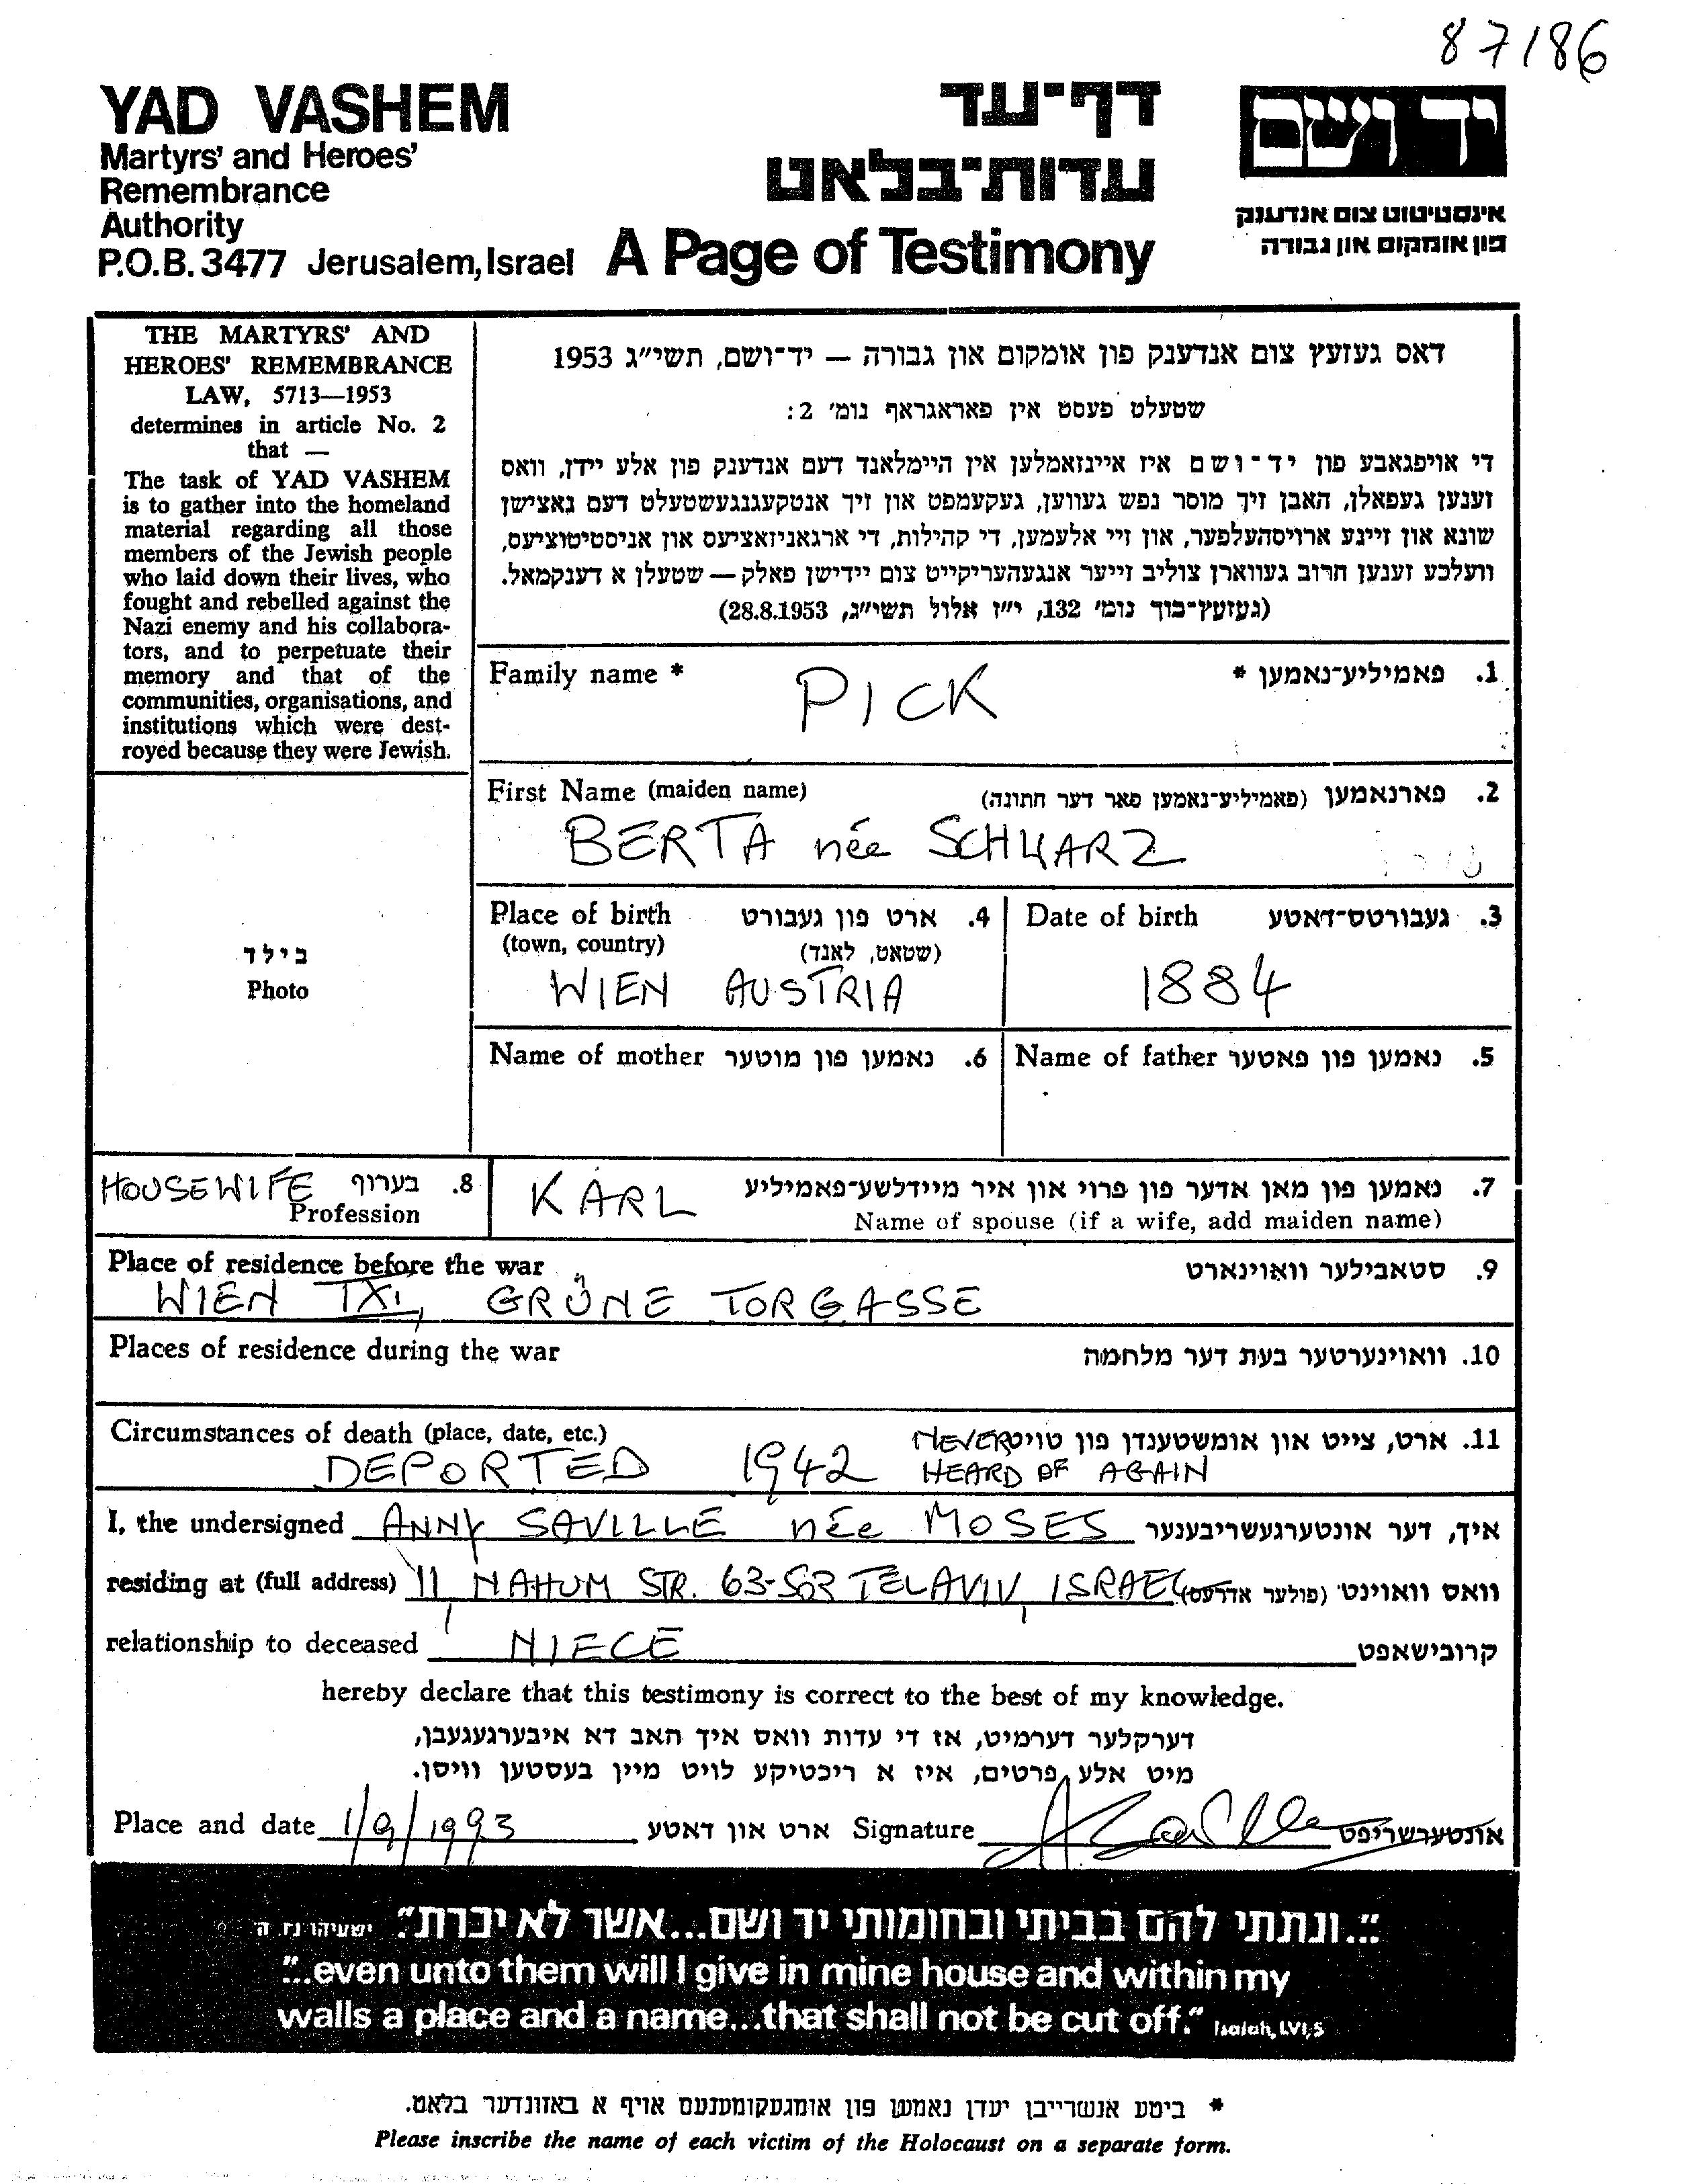 87186
YAD VASHEM
Martyrs' and Heroes'
Remembrance
Authority
P.O.B. 3477 Jerusalem, Israel
דף-עד
עדות-בלאט
A Page of Testimony
יד ושם
אינסטיטוט צום אנדענק
פון אומקום און גבורה
THE MARTYRS' AND
HEROES' REMEMBRANCE
LAW, 5713—1953
determines in article No. 2
that —
The task of YAD VASHEM
is to gather into the homeland
material regarding all those
members of the Jewish people
who laid down their lives, who
fought and rebelled against the
Nazi enemy and his collabora-
tors, and to perpetuate their
memory and that of the
communities, organisations, and
institutions which were dest-
royed because they were Jewish.
דאס געזעץ צום אנדענק פון אומקום און גבורה — יד-ושם, תשי״ג 1953
שטעלט פעסט אין פאראגראף נומ׳ 2:
די אויפגאבע פון יד-ושם איז איינזאמלען אין היימלאנד דעם אנדענק פון אלע יידן, וואס
זענען געפאלן, האבן זיך מוסר נפש געווען, געקעמפט און זיך אנטקעגנגעשטעלט דעם נאצישן
שונא און זיינע ארויסהעלפער, און זיי אלעמען, די קהילות, די ארגאניזאציעס און אניסטיטוציעס,
וועלכע זענען חרוב געווארן צוליב זייער אנגעהעריקייט צום יידישן פאלק — שטעלן א דענקמאל.
(געזעץ-בוך נומ׳ 132, י״ז אלול תשי״ג, 28.8.1953)
Family name * PICK 1. פאמיליע-נאמען *
First Name (maiden name) 2. פארנאמען (פאמיליע-נאמען פאר דער חתונה)
BERTA née SCHWARZ
Place of birth 4. ארט פון געבורט
(town, country) (שטאט, לאנד)
WIEN AUSTRIA
Date of birth 3. געבורטס-דאטע
1884
בילד
Photo
Name of mother 6. נאמען פון מוטער
Name of father 5. נאמען פון פאטער
HOUSEWIFE 8. בערוף
Profession
KARL 7. נאמען פון מאן אדער פון פרוי און איר מיידלשע-פאמיליע
Name of spouse (if a wife, add maiden name)
Place of residence before the war 9. סטאבילער וואוינארט
WIEN IXI, GRÜNE TORGASSE
Places of residence during the war 10. וואוינערטער בעת דער מלחמה
Circumstances of death (place, date, etc.) 11. ארט, צייט און אומשטענדן פון טויט
DEPORTED 1942 NEVER
HEARD OF AGAIN
I, the undersigned ANNY SAVILLE née MOSES איך, דער אונטערגעשריבענער
residing at (full address) 11 NAHUM STR. 63-503 TELAVIV, ISRAEL וואס וואוינט (פולער אדרעס)
relationship to deceased NIECE קרובישאפט
hereby declare that this testimony is correct to the best of my knowledge.
דערקלער דערמיט, אז די עדות וואס איך האב דא איבערגעגעבן,
מיט אלע פרטים, איז א ריכטיקע לויט מיין בעסטען וויסן.
Place and date 1/9/1993 ארט און דאטע Signature אונטערשריפט
״...ונתתי להם בביתי ובחומותי יד ושם...אשר לא יכרת״ ישעיהו נו ה
"..even unto them will I give in mine house and within my
walls a place and a name...that shall not be cut off." Isaiah, LVI,5
* ביטע אנשרייבן יעדן נאמען פון אומגעקומענעם אויף א באזונדער בלאט.
Please inscribe the name of each victim of the Holocaust on a separate form.